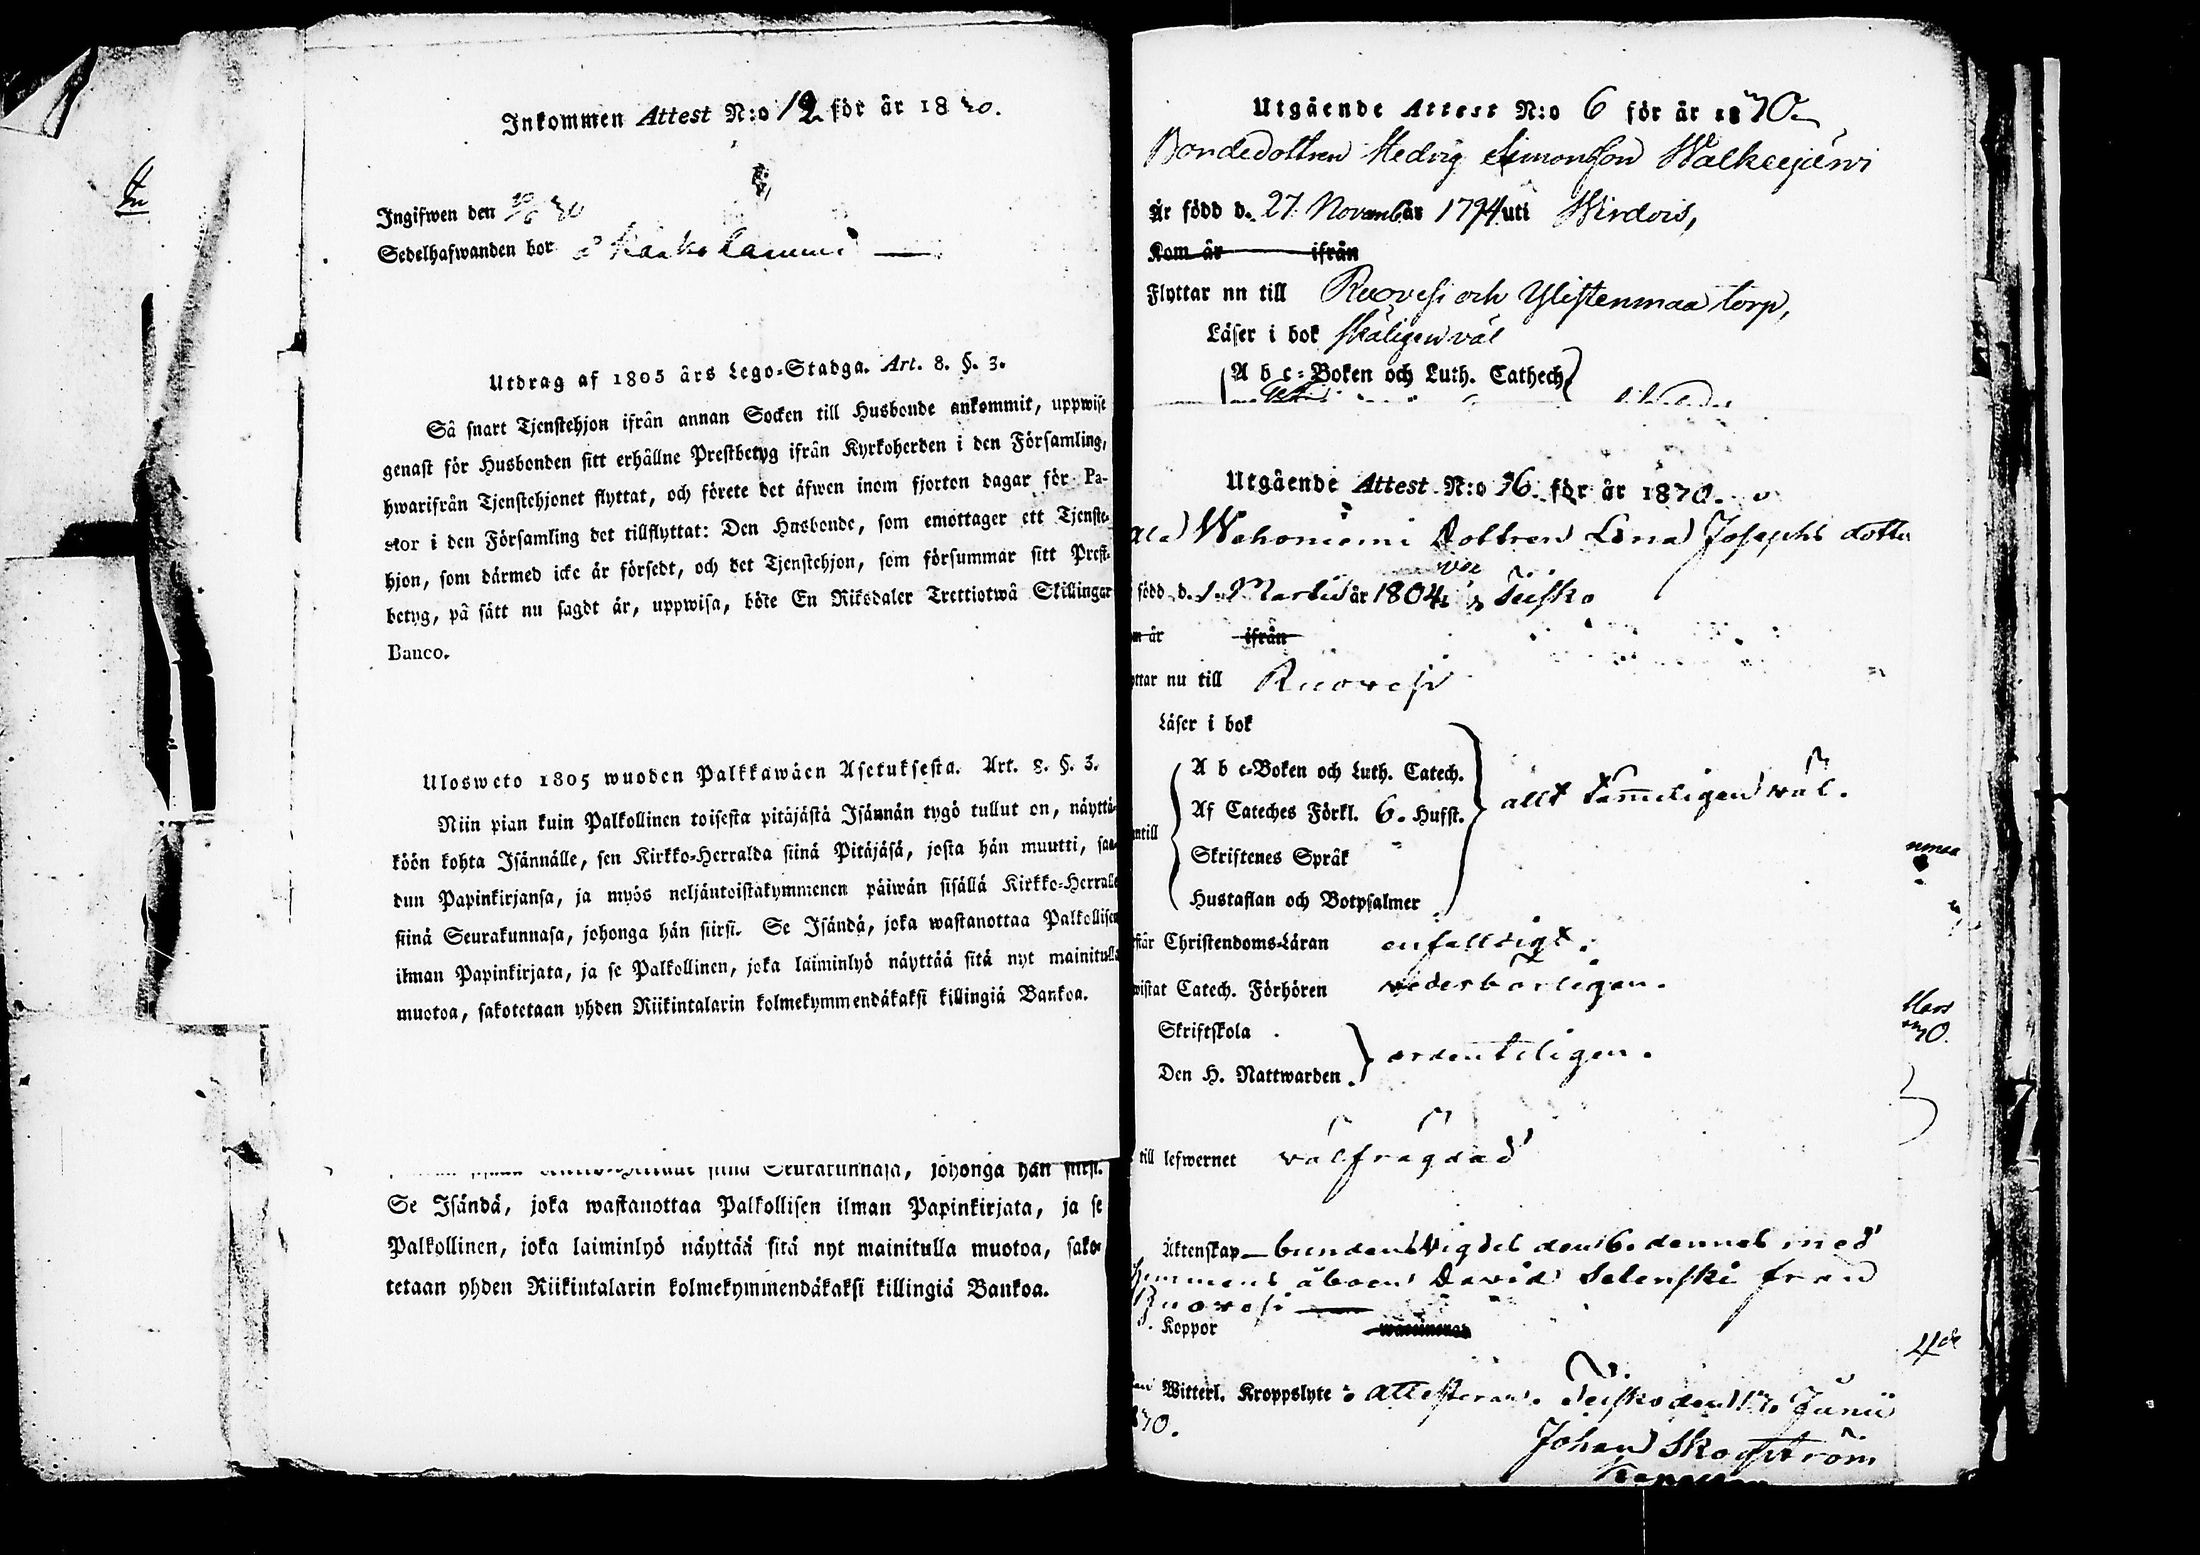 Inkommen Attest N:o 12 för år 1830.
Ingifwen den
Sedelhafwanden bor
Utdrag af 1805 års Lego-Stadga. Art. 8. §. 3.
Så snart Tjenstehjon ifrån annan Socken till Husbonde ankommit, uppwise
genast för Husbonden sitt erhållne Prestbetyg ifrån Kyrkoherden i den Församling,
hwarifrån Tjenstehjonet flyttat, och förete det äfwen inom fjorton dagar för Pa-
stor i den Församling det tillflyttat: Den Husbonde, som emottager ett Tjenste-
hjon, som därmed icke är försedt, och det Tjenstehjon, som försummar sitt Prest-
betyg, på sätt nu sagdt är, uppwisa, böte En Riksdaler Trettiotwå Skillingar
Banco.
Ulosweto 1805 wuoden Palkkawäen Asetuksesta. Art. 8. §. 3.
Niin pian kuin Palkollinen toisesta pitäjästä Isännän tygö tullut on, näyttä-
köön kohta Isännälle, sen Kirkko-Herralda siinä Pitäjäsä, josta hän muutti, saa-
dun Papinkirjansa, ja myös neljäntoistakymmenen päiwän sisällä Kirkko-Herralle
siinä Seurakunnasa, johonga hän siirsi. Se Isändä, joka wastanottaa Palkollisen
ilman Papinkirjata, ja se Palkollinen, joka laiminlyö näyttää sitä nyt mainitulla
muotoa, sakotetaan yhden Riikintalarin kolmekymmendäkaksi killingiä Bankoa.
siinä Seurakunnasa, johonga hän siirsi.
Se Isändä, joka wastanottaa Palkollisen ilman Papinkirjata, ja se
Palkollinen, joka laiminlyö näyttää sitä nyt mainitulla muotoa, sako-
tetaan yhden Riikintalarin kolmekymmendäkaksi killingiä Bankoa.
Utgående Attest N:o 6 för år 1830
Bondedottren Hedvig Simonsson Walkeejärvi
Är född d. 27 November år 1794 uti Wirdois,
Kom år ifrån
Flyttar nu till Ruovesi och Ylistenmaa torp,
Läser i bok skäligen väl
A b c-Boken och Luth. Cathech
Utgående Attest N:o 16 för år 1830.
Wehoniemi Dottren Lena Josephs dotter
född d. 1 Martii år 1804 i Teisko
år ifrån
ttar nu till Ruovesi
Läser i bok
A b c-Boken och Luth. Catech.
Af Cateches Förkl. 6. Hufst.
allt temmeligen väl.
ntill
Skriftenes Språk
Hustaflan och Botpsalmer
står Christendoms-Läran enfalldigt.
wistat Catech. Förhören vederbörligen.
Skriftskola
Den H. Nattwarden ordenteligen.
till lefwernet välfrägdad
Äktenskap bunden, Vigdes den 6. dennes med
åboen David Selenski från
Ruovesi
Koppor
Witterl. Kroppslyte attesteras. Teisko den 13 Junii
30.
Johan Skogström